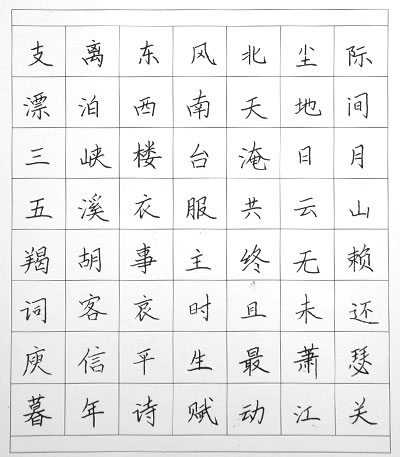 支离东风北尘际
漂泊西南天地间
三峡楼台淹日月
五溪衣服共云山
羯胡事主终无赖
词客哀时且未还
庾信平生最萧瑟
暮年诗赋动江关